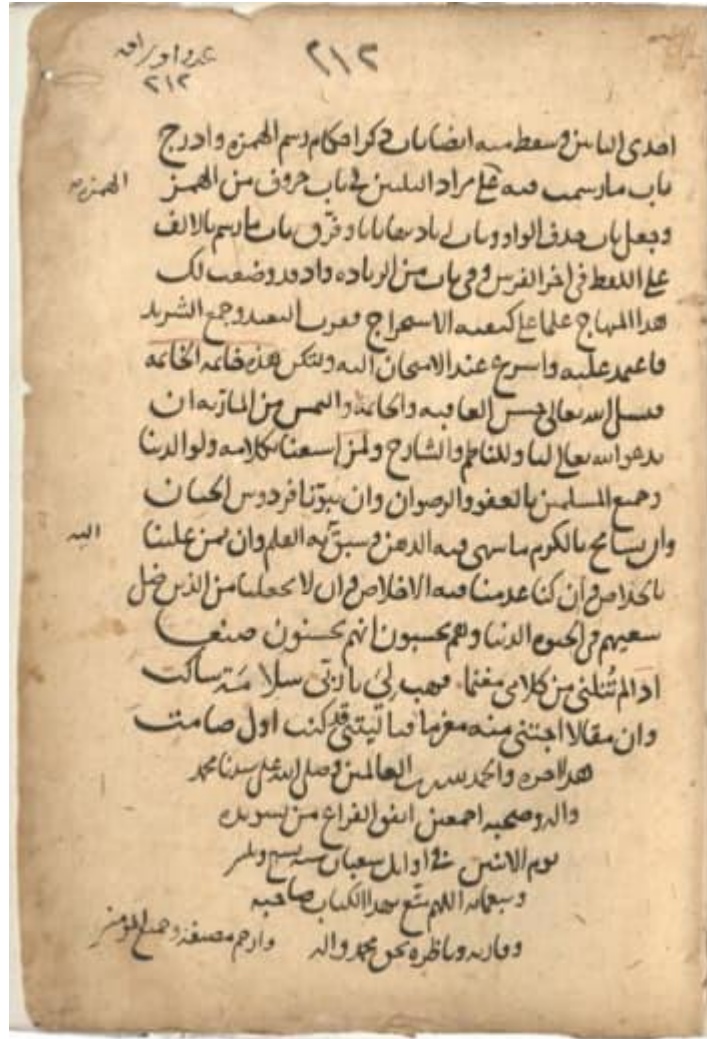 عدد اوراقه
٢١٢
٢١٢
احدى الیاىىن وسقط منه ايضا باب ذكر احكام رسم الهمزة وادرج
باب ما رسمت فيه على مراد التليين في باب حروف من الهمز
الهمزة
وجعل باب حذف الواو وباب وفرق باب ما رسم بالالف
على اللفظ في اخر الفرش وفي باب من الزيادة واذ قد وضعت لك
هذا المنهاج علما على كيفية الاستخراج فقرب البعيد وجمع الشريد
فاعتمد عليه واسرع عند الامتحان اليه ولتكن هذه خاتمة الخاتمة
فنسل الله تعالى حسن العاقبة والخاتمة والتمس من المارّ به ان
يدعو الله تعالى لنا وللناظم والشارح ولمن اسمعنا كلامه ولوالدينا
وجميع المسلمين بالعفو والرضوان وان يبوّئنا فردوس الجنان
وان يسامح بالكرم ما سهى فيه الذهن وسبق به القلم وان يمن علينا
اليه
بالخلاص وان كنا عدمنا فيه الاخلاص وان لا يجعلنا من الذين ضل
سعيهم في الحيوة الدنيا وهم يحسبون انهم يحسنون صنعا
اذا لم تُنلني من كلامي مغنما فهب لي يا ربّي سلامة ساكت
وان مقالا اجتني منه مغرما فيا ليتني قد كنت اول صامت
هذا اخره والحمد لله رب العالمين وصلى الله على سيدنا محمد
واله وصحبه اجمعين اتفق الفراغ من تسويده
يوم الاثنين في اوايل شعبان سنة
وسبعمائة اللهم متّع بهذا الكتاب صاحبه
وقاريه وناظره بحق محمد واله وارحم مصنفه وجميع المؤمنين